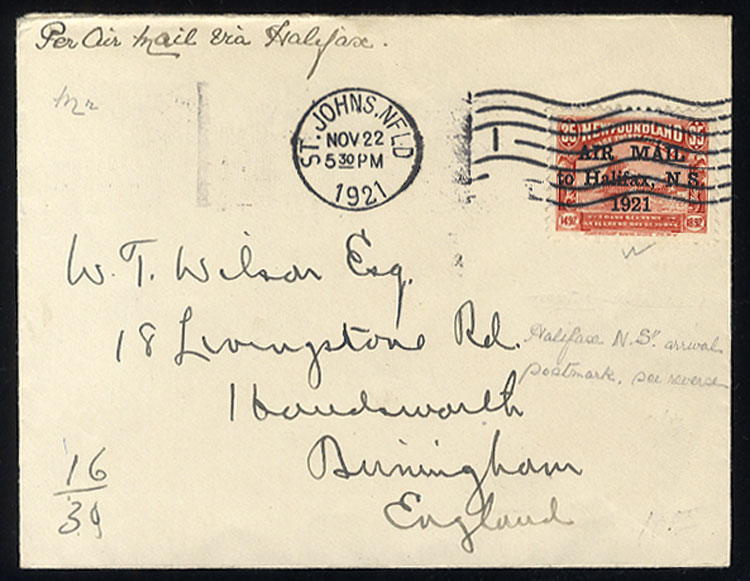 Per Air Mail Via Halifax.
Mr
ST. JOHNS. NFLD
NOV 22
5 30 PM
1921
1
35 NEWFOUNDLAND 35
AIR MAIL
to Halifax, N.S.
1921
1497 1897
W. T. Wilson Esq.
18 Livingstone Rd.
Handsworth
Birmingham
England
Halifax N.S. arrival
postmark, see reverse
16
39